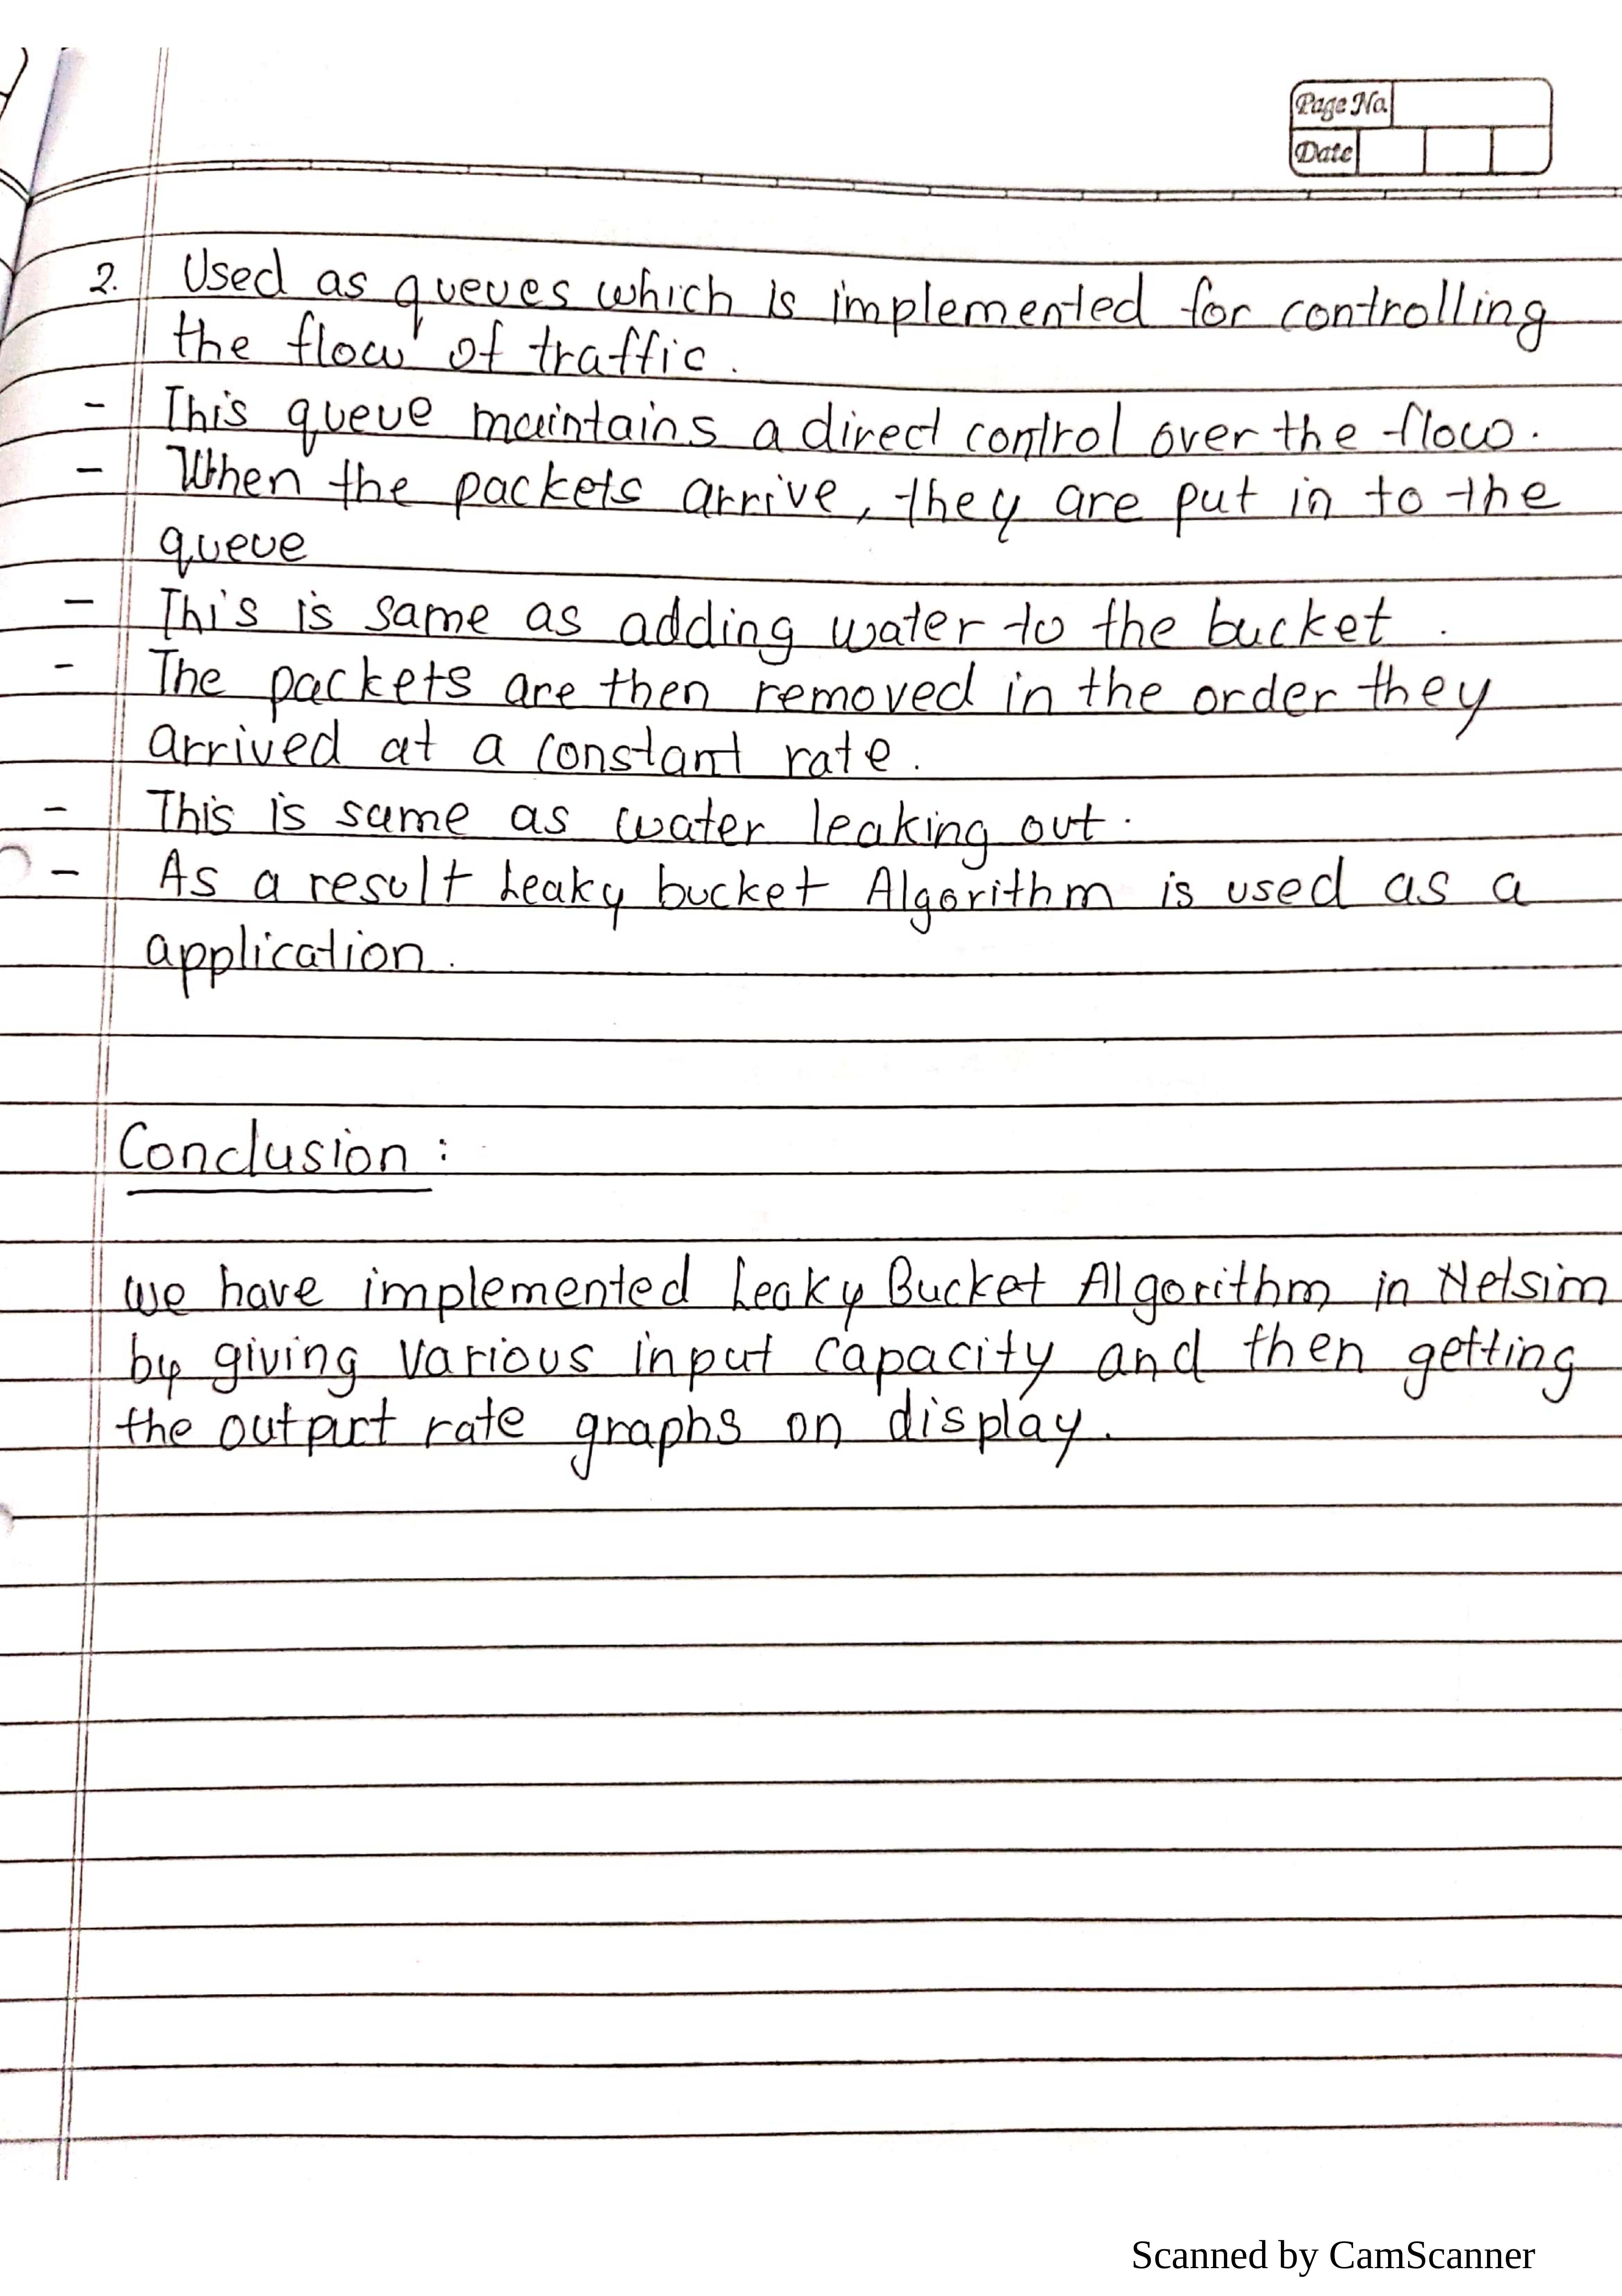 Page No.
Date
2. Used as queues which is implemented for controlling
the flow of traffic.
- This queue maintains a direct control over the flow.
- When the packets arrive, they are put in to the
queue
- This is same as adding water to the bucket.
- The packets are then removed in the order they
arrived at a constant rate.
- This is same as water leaking out.
- As a result Leaky bucket Algorithm is used as a
application.
Conclusion :
we have implemented Leaky Bucket Algorithm in Netsim
by giving various input capacity and then getting
the output rate graphs on display.
Scanned by CamScanner